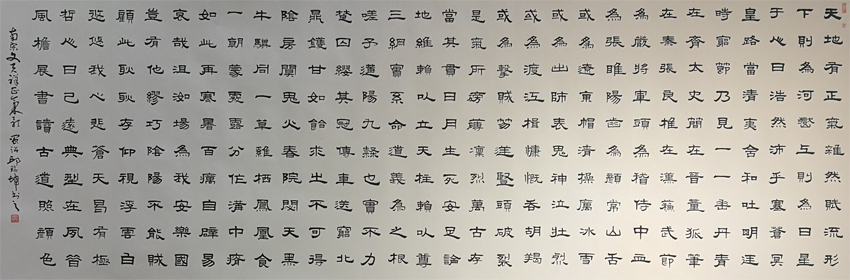 天地有正氣雜然賦流形
下則為河嶽上則為日星
于心曰浩然沛乎塞蒼冥
皇路當清夷含和吐明廷
時窮節乃見一一垂丹青
在齊太史簡在晉董狐筆
在秦張良椎在漢蘇武節
為嚴將軍頭為嵇侍中血
為張睢陽齒為顏常山舌
或為遼東帽清操厲冰雪
或為出師表鬼神泣壯烈
或為渡江楫慷慨吞胡羯
或為擊賊笏逆豎頭破裂
是氣所旁薄凜烈萬古存
當其貫日月生死安足論
地維賴以立天柱賴以尊
三綱實系命道義為之根
嗟予遘陽九隸也實不力
楚囚纓其冠傳車送窮北
鼎鑊甘如飴求之不可得
陰房闃鬼火春院閟天黑
牛驥同一草雞栖鳳凰食
一朝蒙霧露分作溝中瘠
如此再寒暑百癘自辟易
哀哉沮洳場為我安樂國
豈有他繆巧陰陽不能賊
顧此耿耿存仰視浮雲白
悠悠我心悲蒼天曷有極
哲人日已遠典型在夙昔
風檐展書讀古道照顏色
南宋文天祥正氣歌